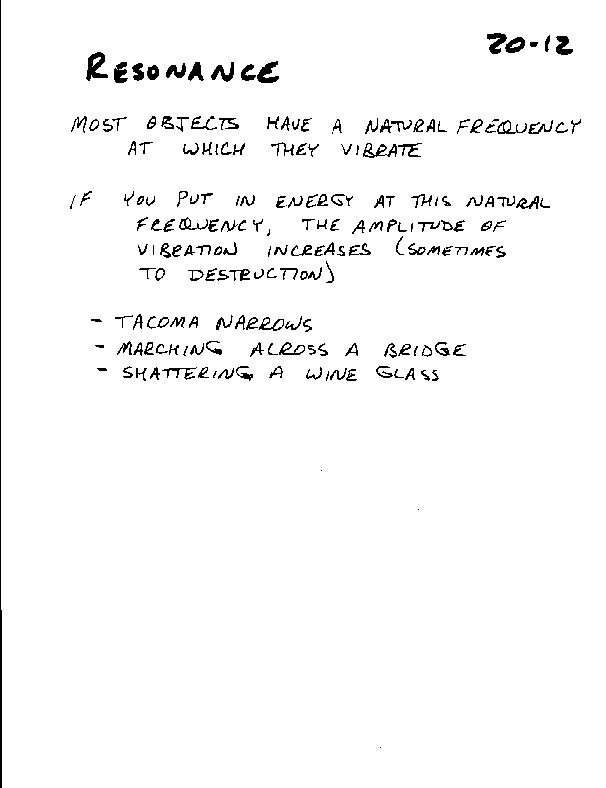 20-12
RESONANCE
MOST OBJECTS HAVE A NATURAL FREQUENCY
AT WHICH THEY VIBRATE
IF YOU PUT IN ENERGY AT THIS NATURAL
FREQUENCY, THE AMPLITUDE OF
VIBRATION INCREASES (SOMETIMES
TO DESTRUCTION)
- TACOMA NARROWS
- MARCHING ACROSS A BRIDGE
- SHATTERING A WINE GLASS